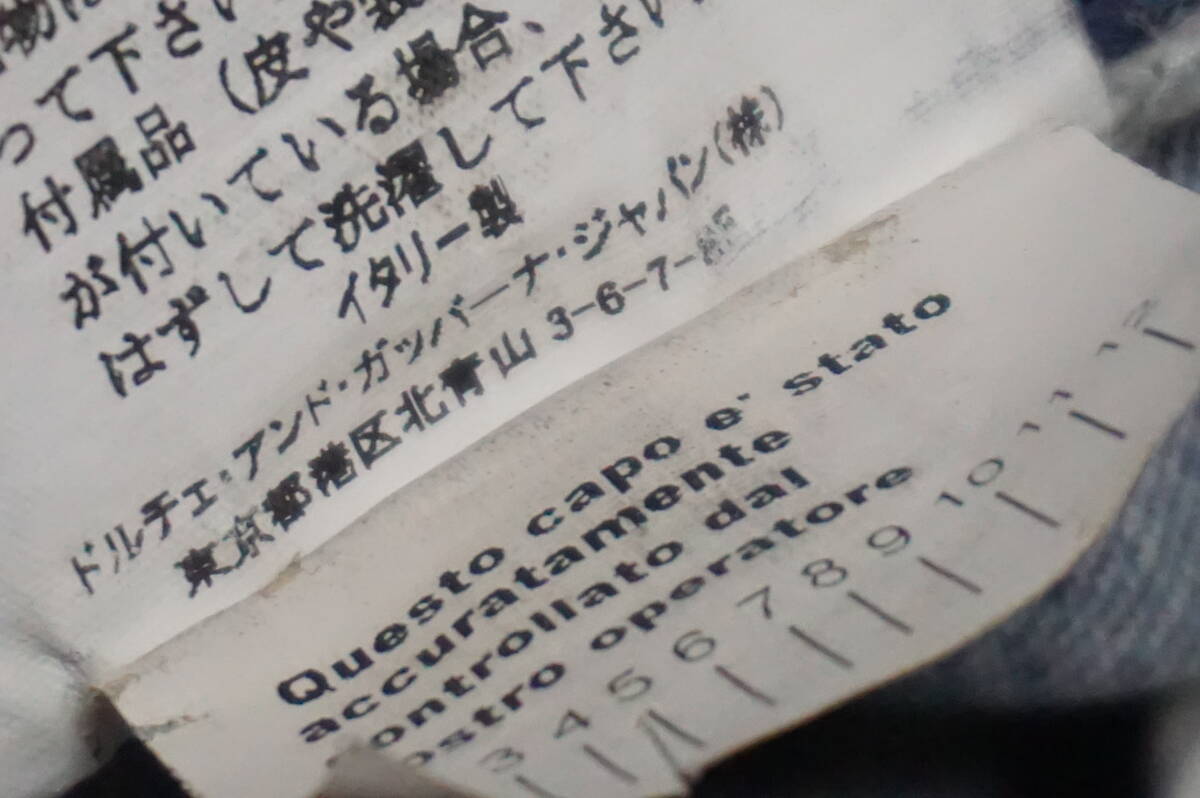 って下さい
付属品（皮や
が付いている場合、
はずして洗濯して下さい
イタリー製
ドルチェ・アンド・ガッバーナ・ジャパン(株)
東京都港区北青山3-6-7-
Questo capo e' stato
accuratamente
ontrollato dal
ostro operatore
3 4 5 6 7 8 9 10